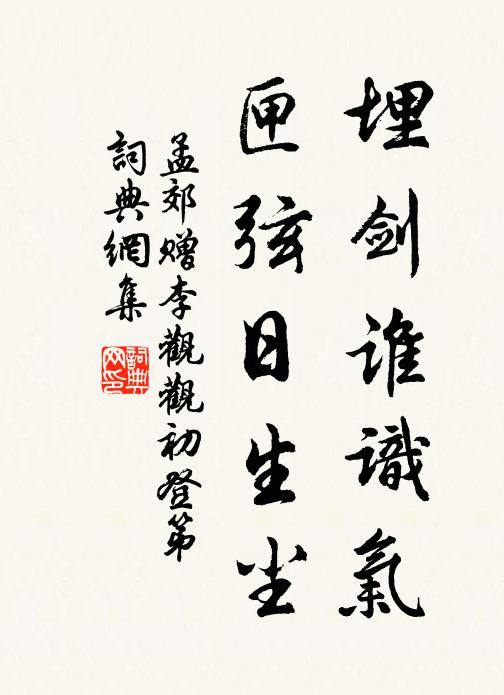 埋剑谁識氣
匣弦日生尘
孟郊赠李觀觀初登第
詞典網集
詞典网印